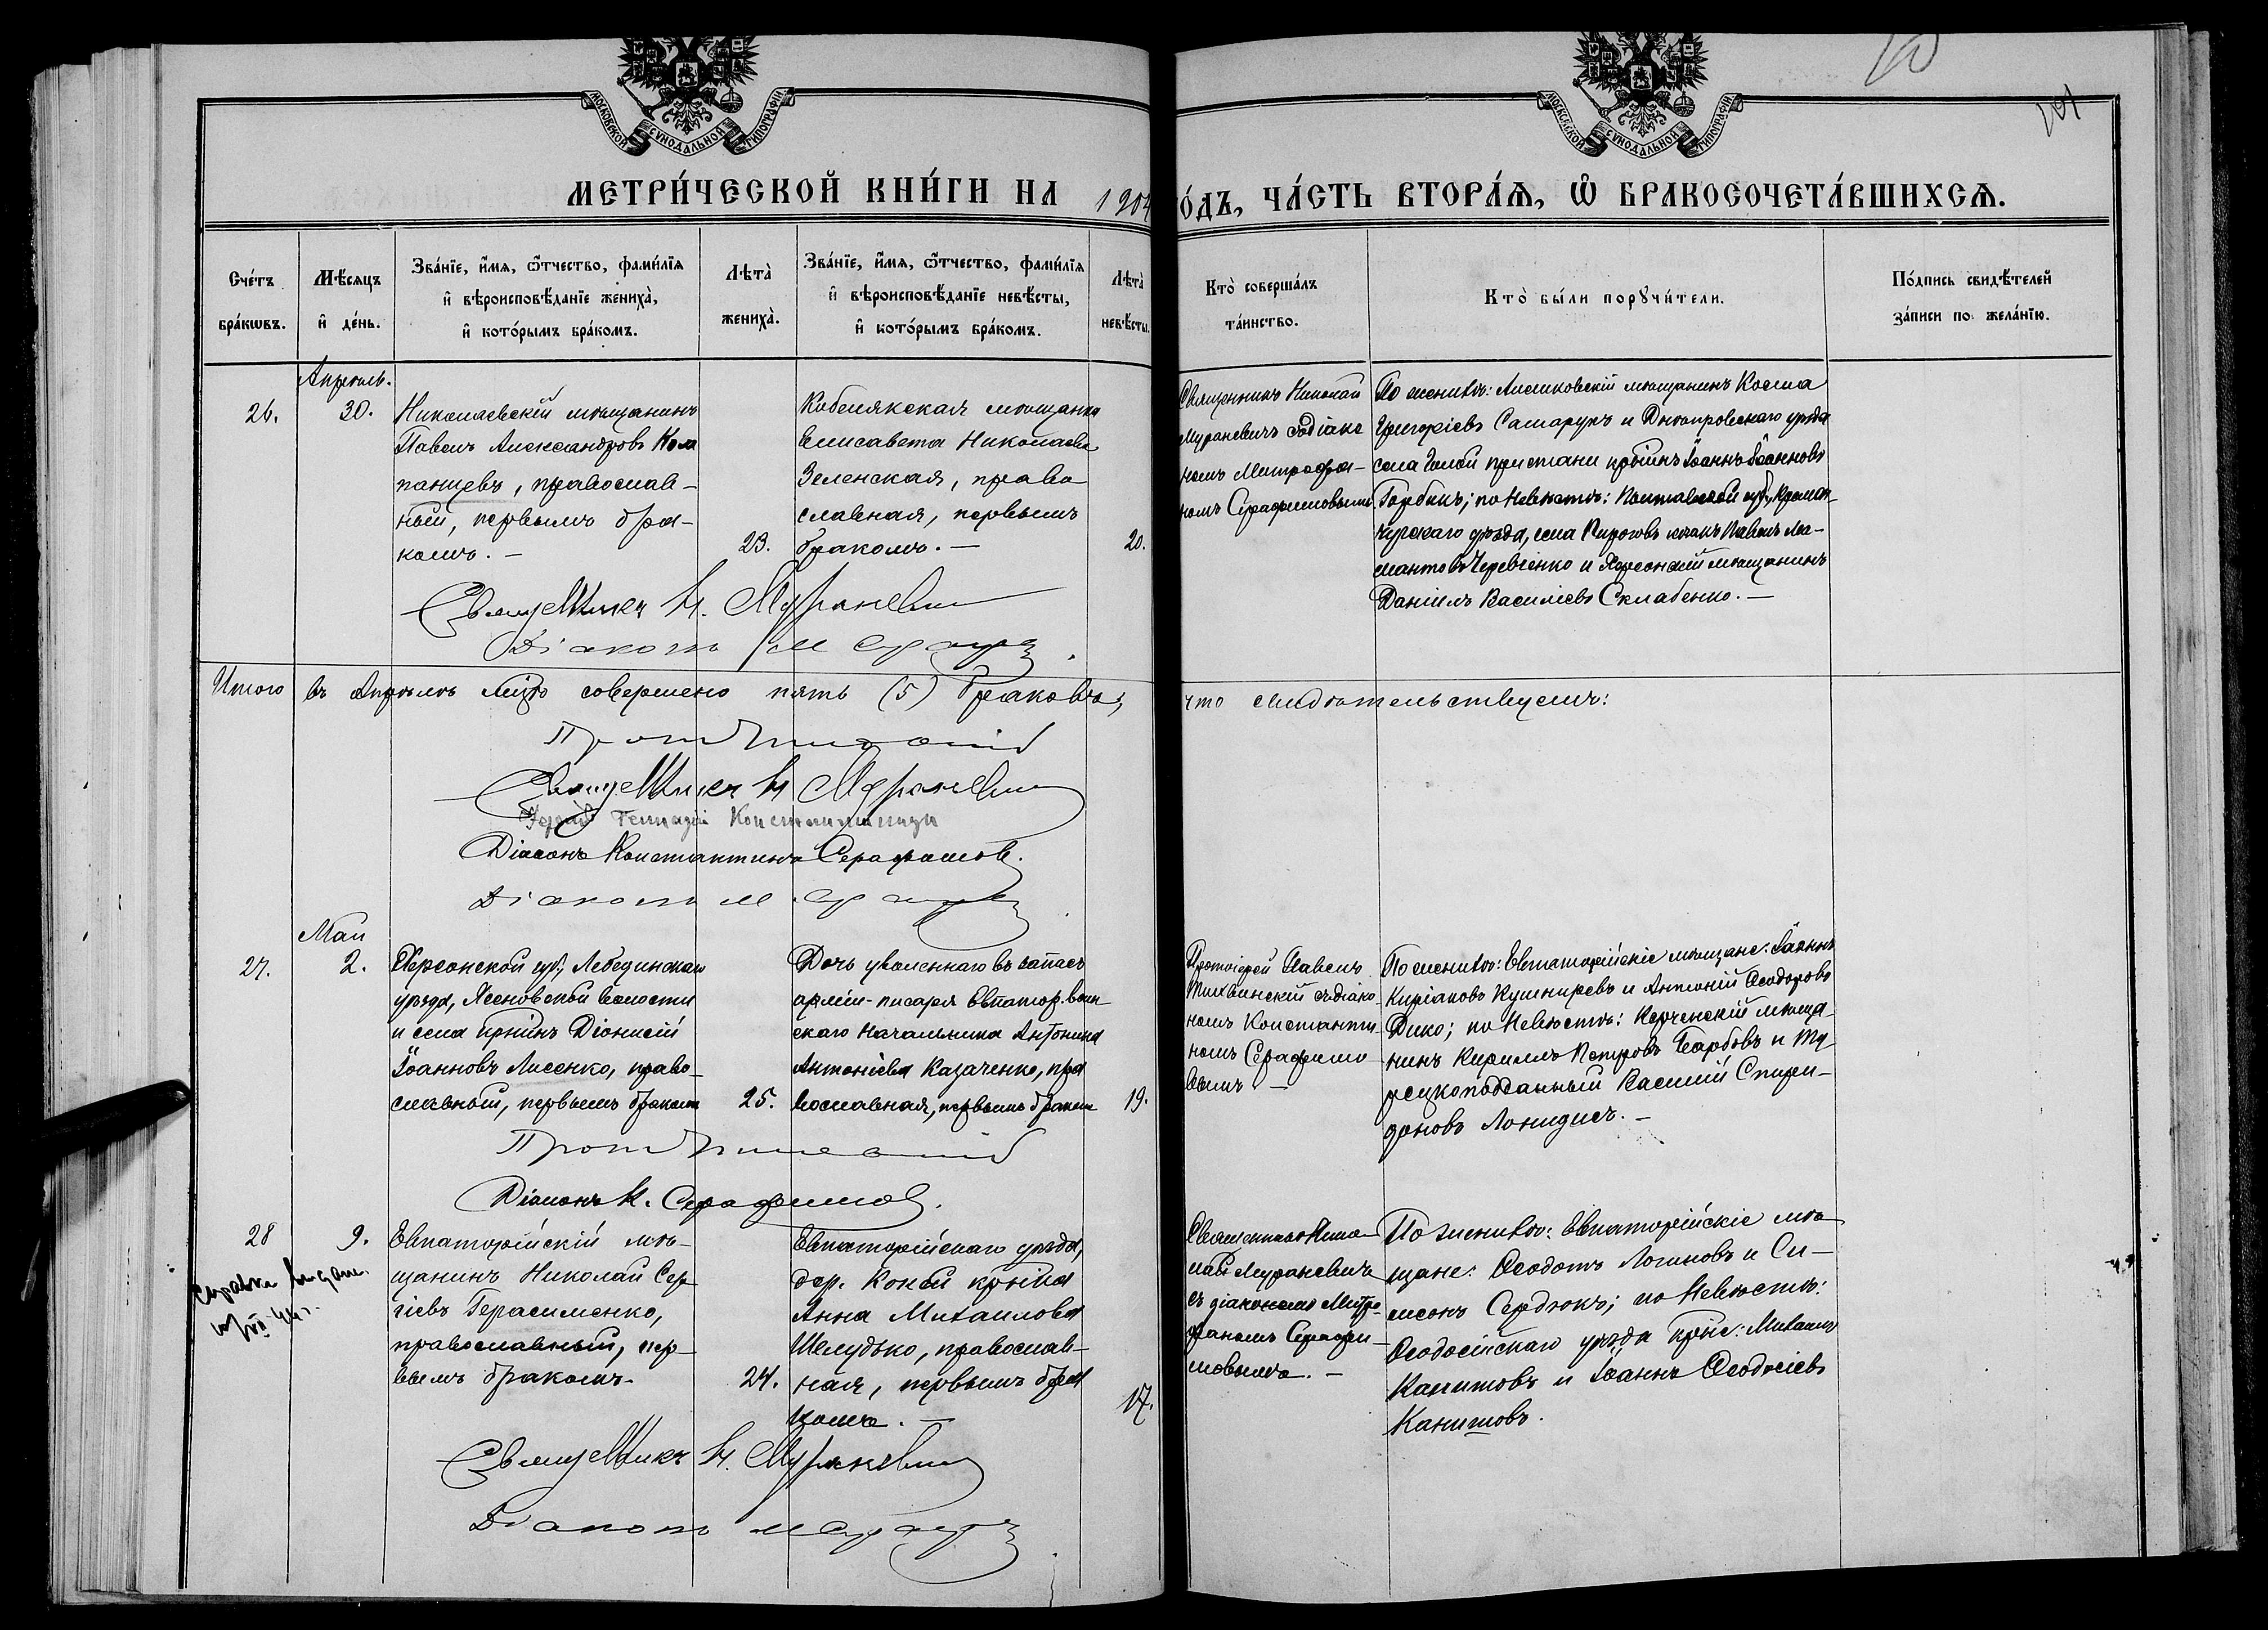 МОСКОВСКОЙ СѴНОДАЛЬНОЙ ТИПОГРАФІИ
МОСКОВСКОЙ СѴНОДАЛЬНОЙ ТИПОГРАФІИ
МЕТРИ́ЧЕСКОЙ КНИ́ГИ НА 1904
О́ДЪ, ЧА́СТЬ ВТОРА́Ѧ, Ѽ БРАКОСОЧЕТА́ВШИХСѦ.
Сче́тъ бра́кѡвъ.
Мѣ́сѧцъ и҆ де́нь.
Зва́нїе, и҆́мѧ, ѻ҆́тчество, фами́лїѧ
и҆ вѣроисповѣ́данїе жениха̀,
и҆ кото́рымъ бра́комъ.
Лѣта̀ жениха̀.
Зва́нїе, и҆́мѧ, ѻ҆́тчество, фами́лїѧ
и҆ вѣроисповѣ́данїе невѣ́сты,
и҆ кото́рымъ бра́комъ.
Лѣта̀ невѣ́сты.
Кто̀ соверша́лъ
та́инство.
Кто̀ бы́ли порꙋчи́тели.
По́дпись свидѣ́телей
за́писи по жела́нїю.
Апрѣль.
26.
30.
Николаевскій мѣщанинъ
Павелъ Александровъ Кола
панцевъ, православ-
ный, первымъ бра-
комъ. —
23.
Кобелякская мѣщанка
Елисавета Николаева
Зеленская, право
славная, первымъ
бракомъ. —
20.
Священникъ Николай
Мураневичъ съ діако
номъ Митрофа-
номъ Серафимовымъ
По женихѣ: Алешковскій мѣщанинъ Косма
Григоріевъ Самарукъ и Днѣпровскаго уѣзда
села Голой пристани кр-нинъ Іоаннъ Іоанновъ
Горбинъ; по невѣстѣ: Полтавской губ., Кремен-
чугскаго уѣзда, села Пироговъ козакъ Павелъ Ма-
мантовъ Черевченко и Херсонскій мѣщанинъ
Даніилъ Василіевъ Склабенко. —
Священникъ Н. Мураневич
Діаконъ М Сераф
Итого въ Апрѣлѣ мцѣ совершено пять (5) браковъ, что свидѣтельствуемъ:
Прот Тихвинскій
Священникъ Н Мураневич
Іерей Геннадій
Діаконъ Константинъ Серафимов.
Діаконъ М. Сераф
Май
27.
2.
Херсонской губ., Лебединскаго
уѣзда, Ясеновской волости
и села кр-нинъ Діонисій
Іоанновъ Лисенко, право-
славный, первымъ бракомъ
25.
Дочь уволеннаго въ запасъ
арміи - писаря Евпатор. воин
скаго Начальника Антонина
Антоніева Казаченко, пра
вославная, первымъ бракомъ
19.
Протоіерей Павелъ
Тихвинскій съ діако
номъ Константи
номъ Серафимо
вымъ —
По женихѣ: Евпаторійскіе мѣщане: Іоаннъ
Киріаковъ Кушниревъ и Антоній Ѳеодоровъ
Дико; по невѣстѣ: Керченскій мѣща-
нинъ Кириллъ Петровъ Барбовъ и Ту-
рецкоподданный Василій Спири-
доновъ Лонидисъ. —
Прот Тихвинскій
Діаконъ К. Серафимов.
28
9.
Справка выдана.
Евпаторійскій мѣ-
щанинъ Николай Сер-
гіевъ Герасименко,
православный, пер-
вымъ бракомъ.
24.
Евпаторійскаго уѣзда,
дер. Коной кр-нка
Анна Михаилова
Шелудько, православ-
ная, первымъ бра
комъ. —
17.
Священникъ Нико-
лай Мураневичъ
съ діакономъ Митро-
фаномъ Серафи-
мовымъ. —
По женихѣ: Евпаторійскіе мѣ-
щане: Ѳеодотъ Логиновъ и Си-
меонъ Сердюкъ; по невѣстѣ:
Ѳеодосійскаго уѣзда кр-не: Михаилъ
Канишовъ и Іоаннъ Ѳеодосіевъ
Канишовъ.
Священникъ Н. Мураневич
Діаконъ М Сераф